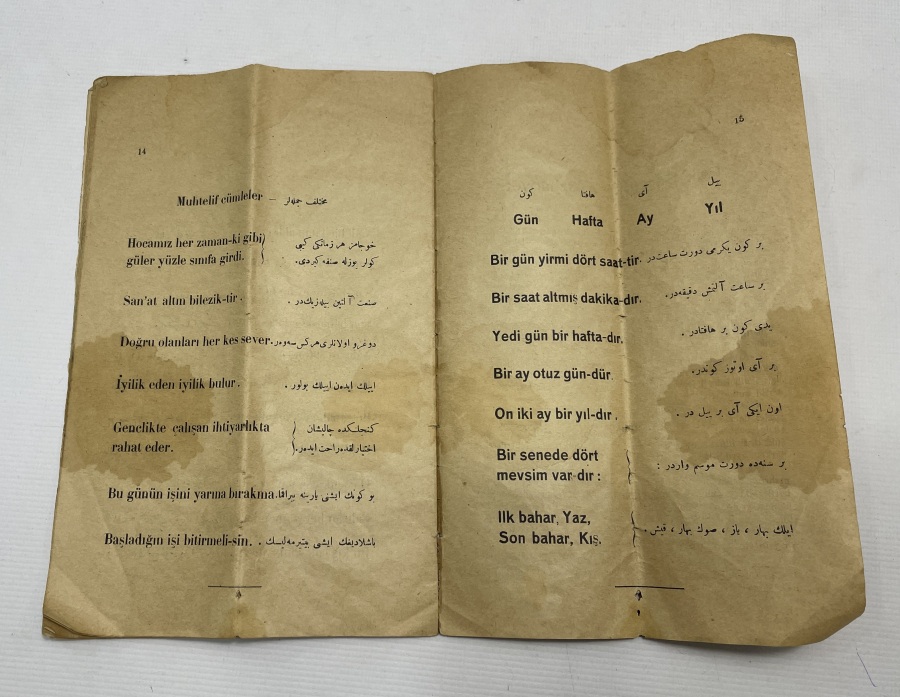 14
Muhtelif cümleler — مختلف جمله‌لر
Hocamız her zaman-ki gibi خوجامز هر زمانكی كبی
güler yüzle sınıfa girdi. كولر یوزله صنفه كیردی.
San'at altın bilezik-tir. صنعت آلتین بیله‌زیك‌در.
Doğru olanları her kes sever. دوغرو اولانلری هركس سه‌وه‌ر.
İyilik eden iyilik bulur. اییلك ایده‌ن اییلك بولور.
Gençlikte çalışan ihtiyarlıkta كنجلكده چالیشان
rahat eder. اختیارلقده راحت ایده‌ر.
Bu günün işini yarma bırakma. بو كونك ایشنی یارینه بیراقما.
Başladığın işi bitirmeli-sin. باشلادیغك ایشی بیتیرمه‌لیسك.
15
كون هافتا آی ییل
Gün Hafta Ay Yıl
Bir gün yirmi dört saat-tir. بر كون یكرمی دورت ساعت‌در.
Bir saat altmış dakika-dır. بر ساعت آلتمش دقیقه‌در.
Yedi gün bir hafta-dır. یدی كون بر هافتادر.
Bir ay otuz gün-dür. بر آی اوتوز كوندر.
On iki ay bir yıl-dır. اون ایكی آی بر ییل در.
Bir senede dört
mevsim var-dır: بر سنه‌ده دورت موسم واردر:
Ilk bahar, Yaz,
Son bahar, Kış. ایلك بهار، یاز، صوك بهار، قیش.